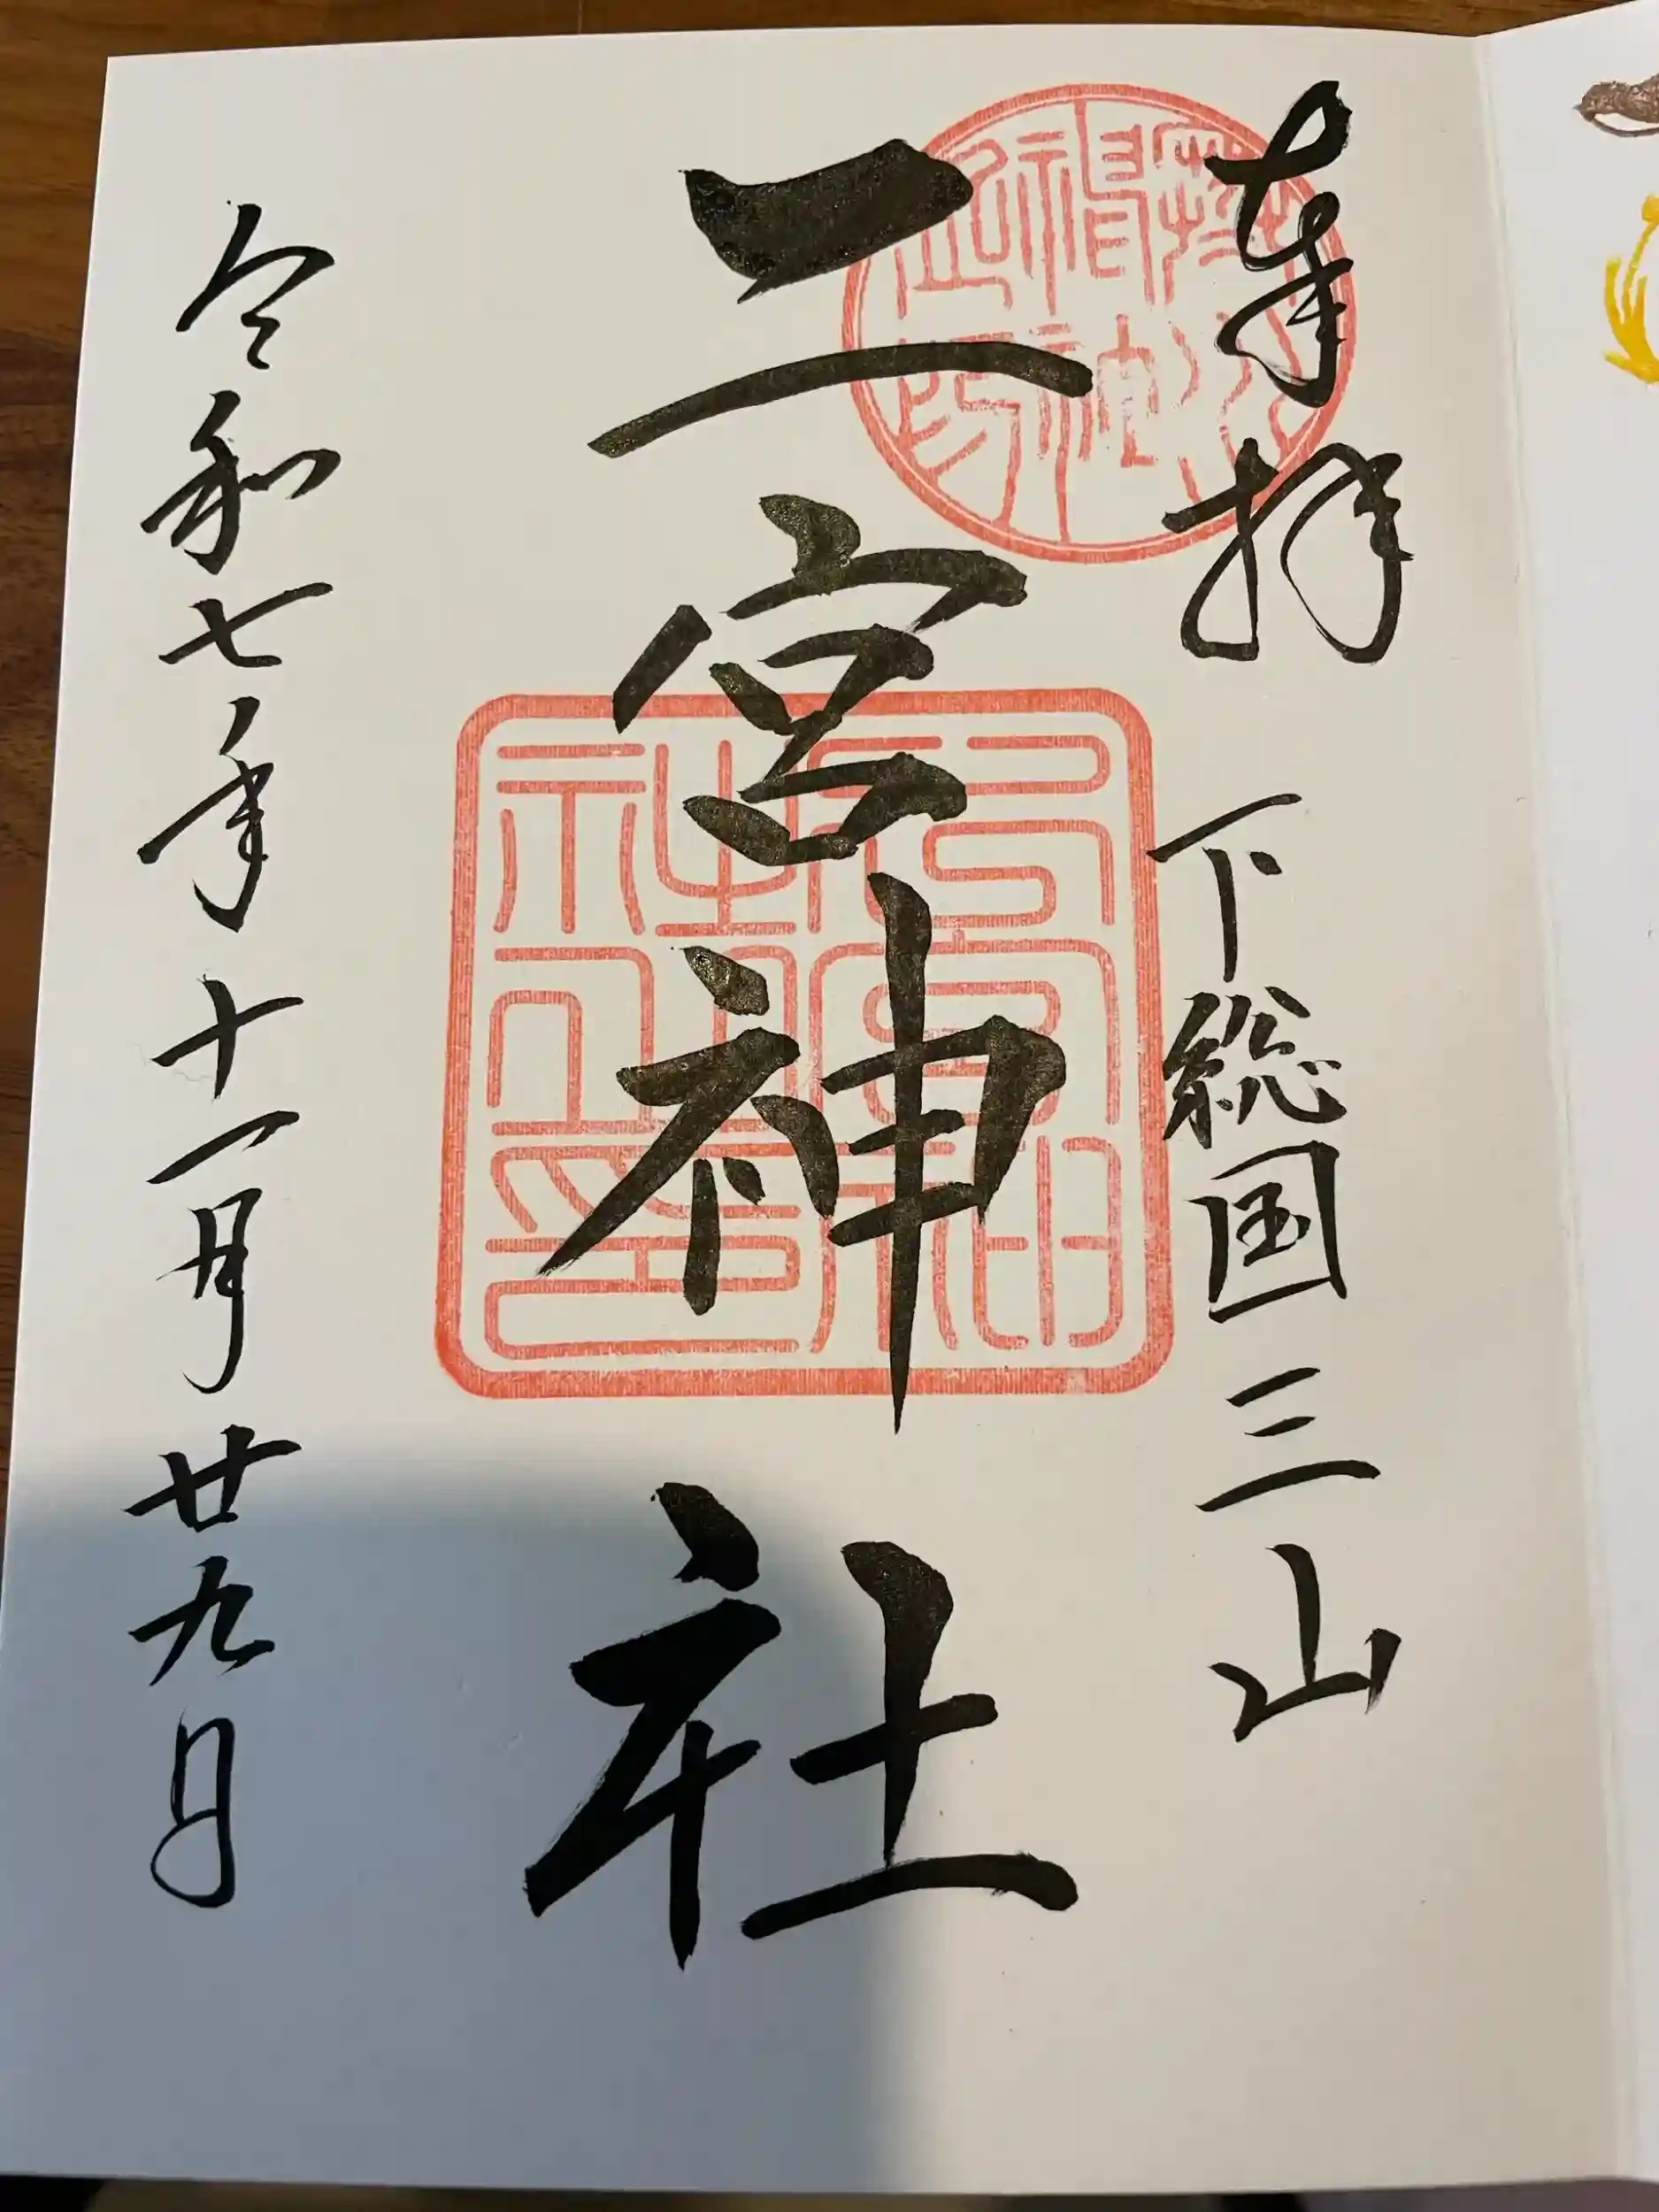 奉拝 下総国三山
二宮神社
令和七年十一月廿九日